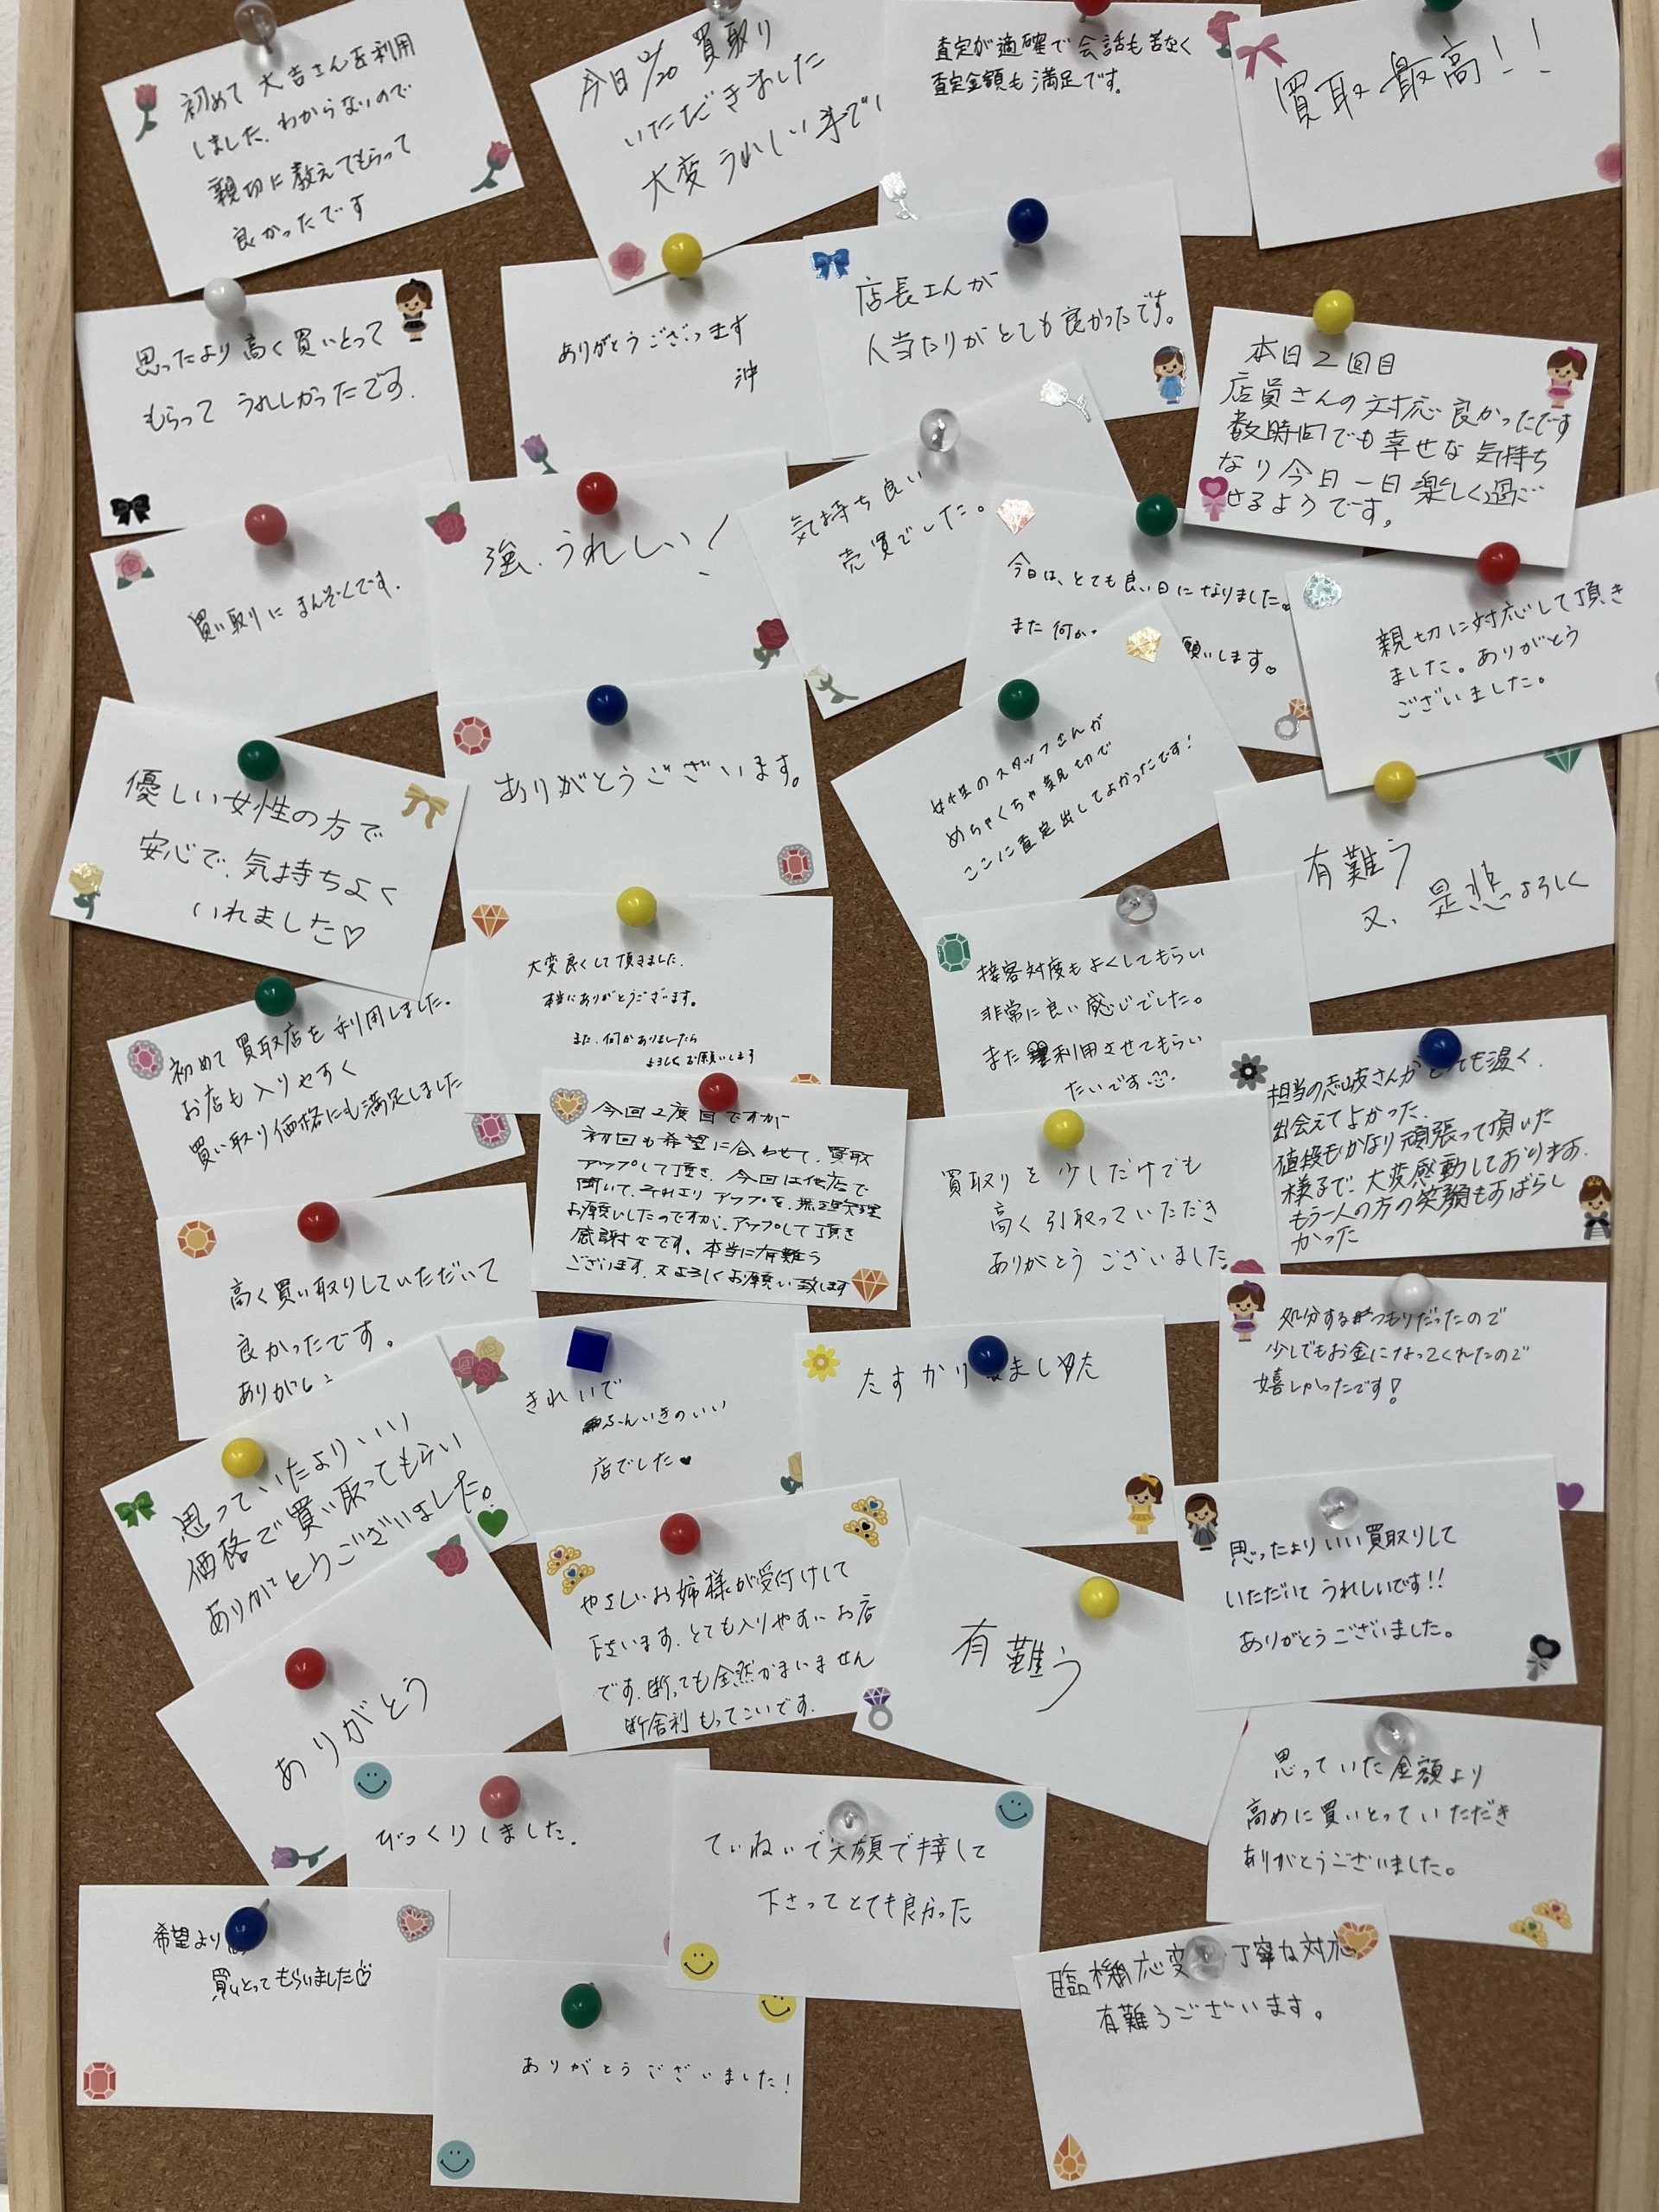 初めて大吉さんを利用
しました。わからないので
親切に教えてもらって
良かったです
今日 買取り
いただきました
大変うれしい
査定が適確で会話も苦なく
査定金額も満足です。
買取最高!!
思ったより高く買いとって
もらって うれしかったです.
ありがとうございます
沖
店長さんが
人当たりがとても良かったです。
本日2回目
店員さんの対応良かったです
数時間でも幸せな気持ち
なり今日一日楽しく過ご
せるようです。
買い取りにまんぞくです.
強.うれしい!
気持ち良い
売買でした。
今日は、とても良い日になりました。
また何か
願いします。
親切に対応して頂き
ました。ありがとう
ございました。
優しい女性の方で
安心で、気持ちよく
いれました♡
ありがとうございます。
女性のスタッフさんが
めちゃくちゃ親切で
ここに査定出してよかったです!
有難う
又、是非よろしく
初めて買取店を利用しました.
お店も入りやすく
買い取り価格にも満足しました
大変良くして頂きました.
本当にありがとうございます。
また、何かありましたら
よろしくお願いします
接客対度もよくしてもらい
非常に良い感じでした。
また利用させてもらい
たいです
担当の志岐さんがとても温く.
出会えてよかった.
値段もかなり頑張って頂いた
様子で、大変感動しております.
もう一人の方の笑顔もすばらし
かった
今回2度目ですが
初回も希望に合わせて、買取
アップして頂き、今回は他店で
聞いて、それよりアップを、無理
お願いしたのですが、アップして頂き
感謝です、本当に有難う
ございます.又よろしくお願い致します
買取りを少しだけでも
高く引取っていただき
ありがとうございました.
高く買い取りしていただいて
良かったです。
きれいで
ふんいきのいい
店でした♥
たすかりました
処分するつもりだったので
少しでもお金になってくれたので
嬉しかったです!
思っていたよりいい
価格で買い取ってもらい
ありがとうございました。
やさしいお姉様が受付けして
下さいます.とても入りやすいお店
です.断っても全然かまいません
断舎利もってこいです.
有難う
思ったよりいい買取りして
いただいてうれしいです!!
ありがとうございました。
ありがとう
びっくりしました.
ていねいで笑顔で接して
下さってとても良かった
思っていた金額より
高めに買いとっていただき
ありがとうございました。
希望より
買いとってもらいました♡
ありがとうございました!
臨機応変 丁寧な対応
有難うございます。